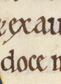 exau
doce